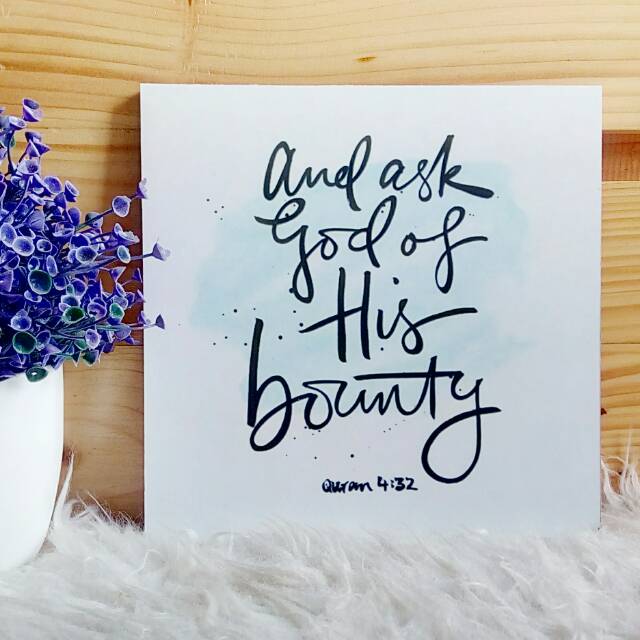 and ask
God of
His
bounty
Quran 4:32